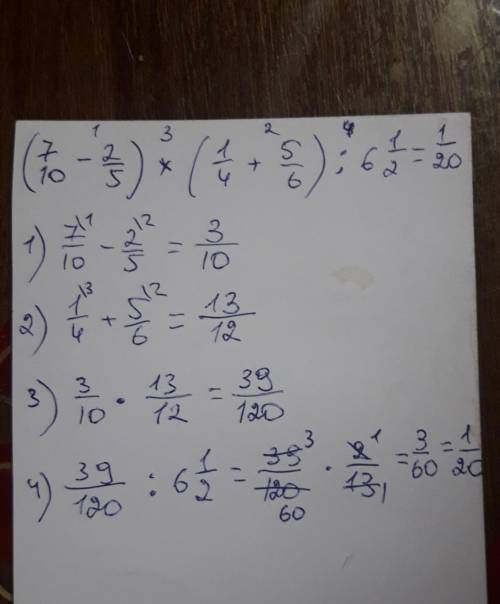 (7/10 - 2/5) * (1/4 + 5/6) : 6 1/2 = 1/20
1) 7/10 - 2/5 = 3/10
2) 1/4 + 5/6 = 13/12
3) 3/10 · 13/12 = 39/120
4) 39/120 : 6 1/2 = 39/120 · 2/13 = 3/60 = 1/20